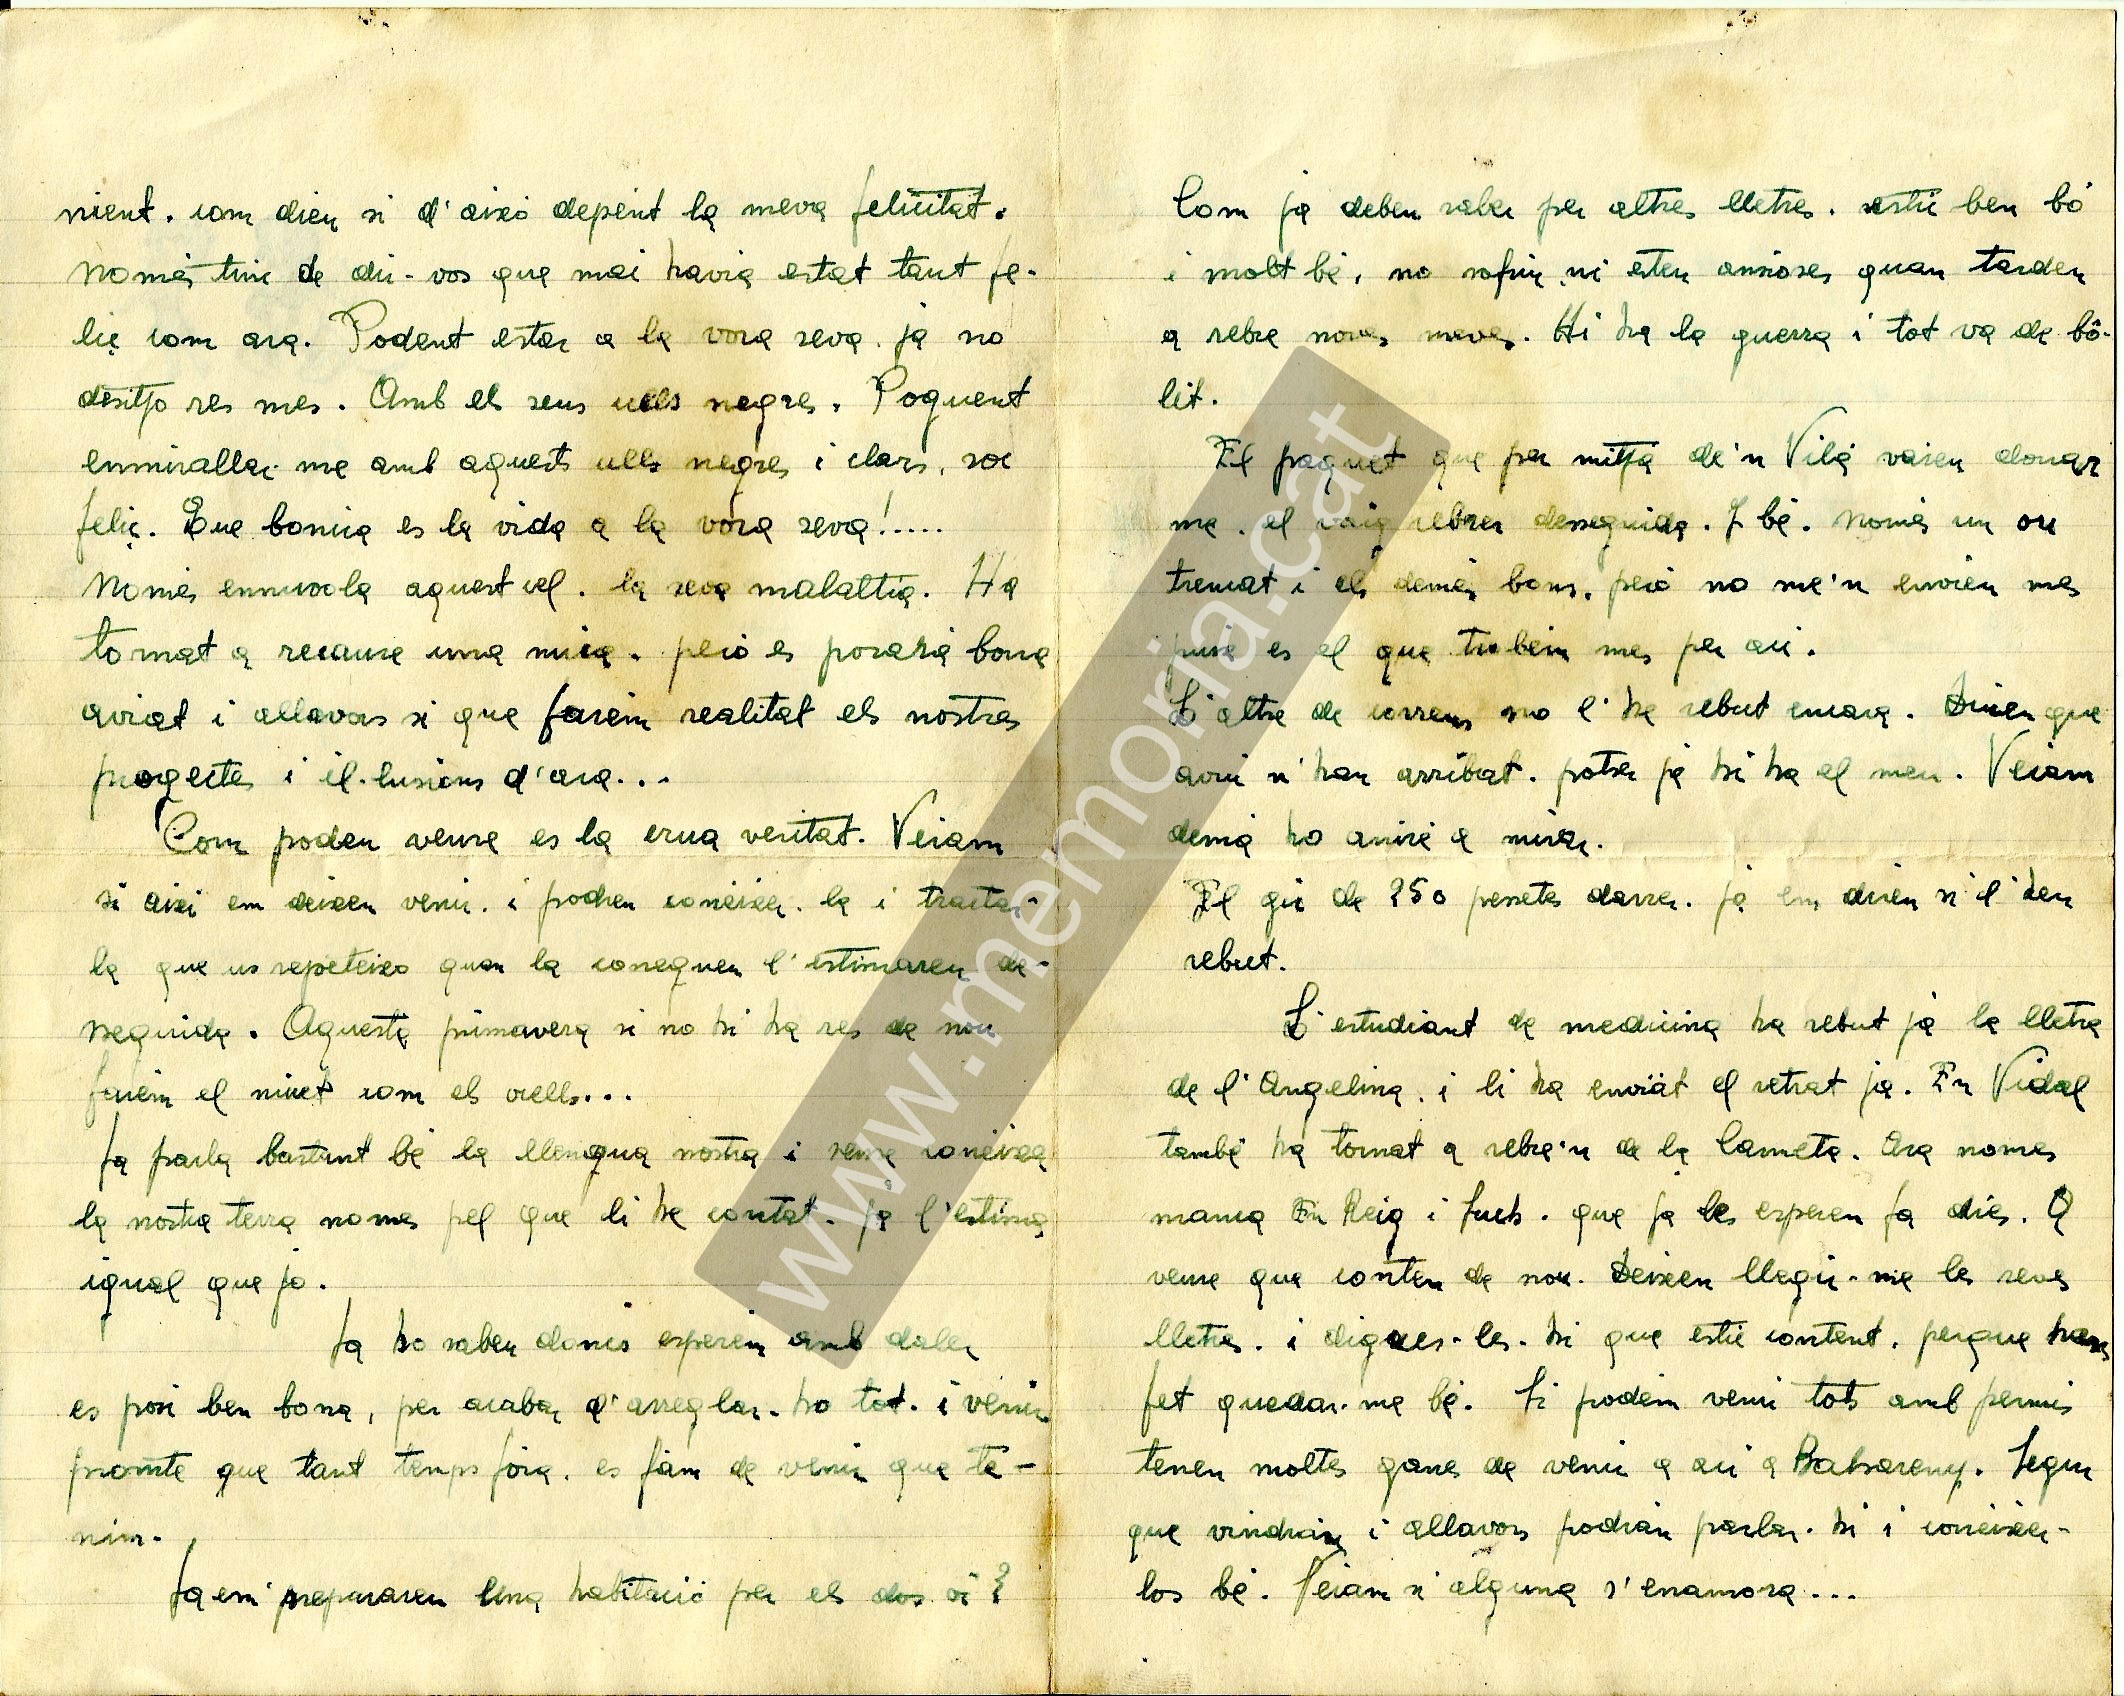 nient. com dieu si d'aixó depent la meva felicitat.
Només tinc de dir-vos que mai havia estat tant fe-
liç com ara. Podent estar a la vora seva. ja no
desitjo res mes. Amb els seus ulls negres. Poguent
enmirallar-me amb aquests ulls negres i clars, soc
feliç. Que bonica es la vida a la vora seva!.....
Només ennuvola aquest cel. la seva malaltia. Ha
tornat a recaure una mica. peró es posará bona
aviat i allavors si que farém realitat els nostres
progectes i il·lusions d'ara...
Com poden veure es la crua veritat. Veiam
si aixi em deixen venir. i podren conéixer-la i tractar-
la que us repeteixo quan la coneguen l'estimaren de-
seguida. Aquesta primavera si no hi ha res de nou
farém el niuet com els ocells...
Ja parla bastant bé la llengua nostra i sense coneixe
la nostra terra nomes pel que li he contat. ja l'estima
igual que jo.
Ja ho saben doncs esperém amb daler
es posi ben bona, per acabar d'arreglar-ho tot. i venir
promte que tant temps fóra. es fám de venir que te-
nim.
Ja em prepararen una habitació per els dos oi?
Com ja deben saber per altres lletres. estic ben bó
i molt bé, no sofrin, ni esten ansioses quan tarden
a rebre noves meves. Hi ha la guerra i tot va de bó-
lit.
El paquet que per mitjá de'n Vilá varen donar
me. el vaig rebrer desseguida. I bé. Només un ou
trencat i els demés bons, peró no me'n envien mes
puix es el que trobém mes per aci.
L'altre de correus no l'he rebut encara. Diuen que
avui n'han arribat. potser ja hi ha el meu. Veiam
demá ho aniré a mirar.
El gir de 250 pessetes darrer. ja em diren si l'hen
rebut.
L'estudiant de medicina ha rebut ja la lletra
de l'Angelina. i li ha enviat el retrat ja. En Vidal
també ha tornat a rebre'n de la Carmeta. Ara nomes
manca En Reig i Lluch. que ja les esperen fa dies. A
veure que conten de nou. Deixen llegir-me les seves
lletres. i digues-les-hi que estic content. perque han
fet quedar-me bé. Si podém venir tots amb permis
tenen moltes ganes de venir a aci a Balsareny. Segur
que vindrán i allavors podrán parlar-hi i conéixer-
los bé. Veiam si alguna s'enamora...
www.memoria.cat